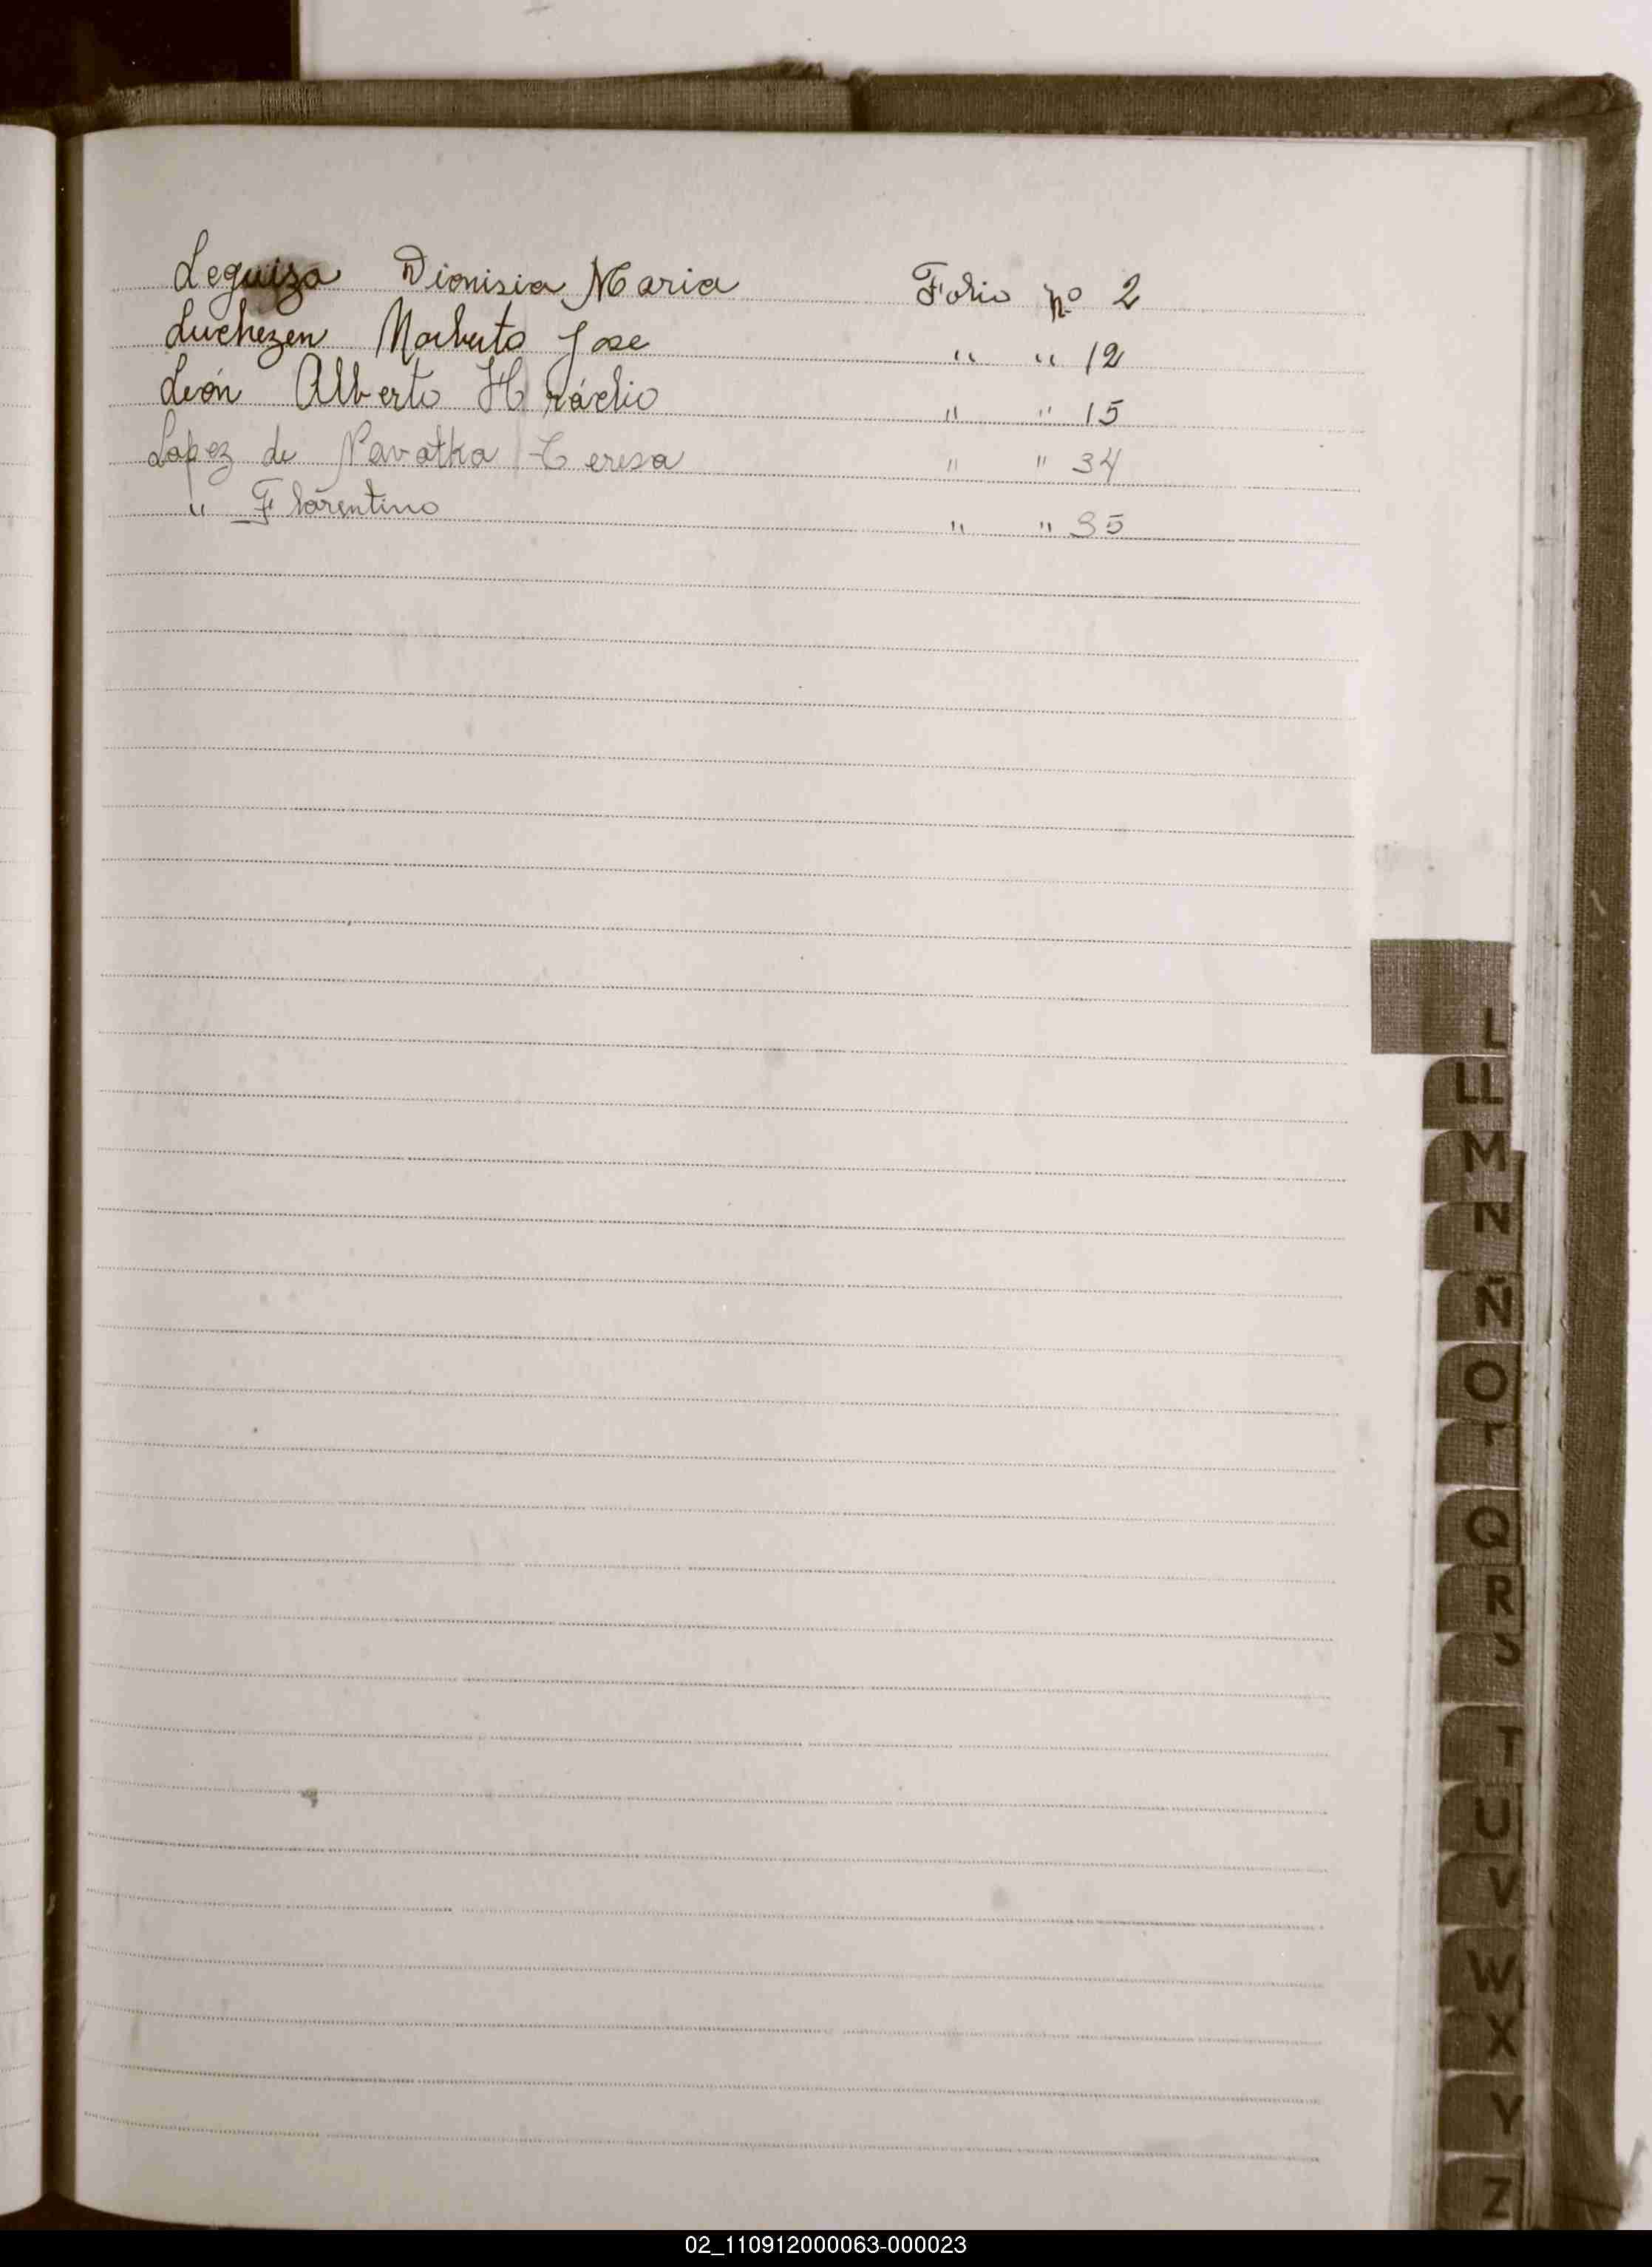 Leguiza Dionisia Maria Folio nº 2
Luchezen Norberto Jose " " 12
León Alberto Horácio " " 15
Lopez de Navatka Teresa " " 34
" Florentino " " 35
L
LL
M
N
Ñ
O
Q
R
S
T
U
V
W
X
Y
Z
02_110912000063-000023